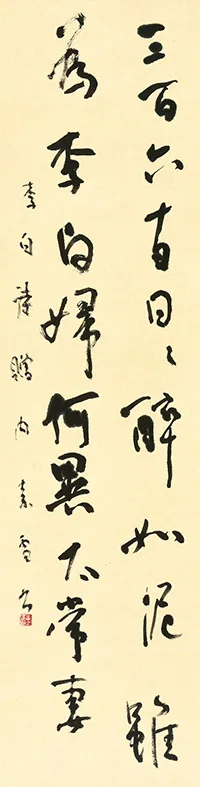 三百六十日日々醉如泥雖
為李白婦何異太常妻
李白詩贈內素